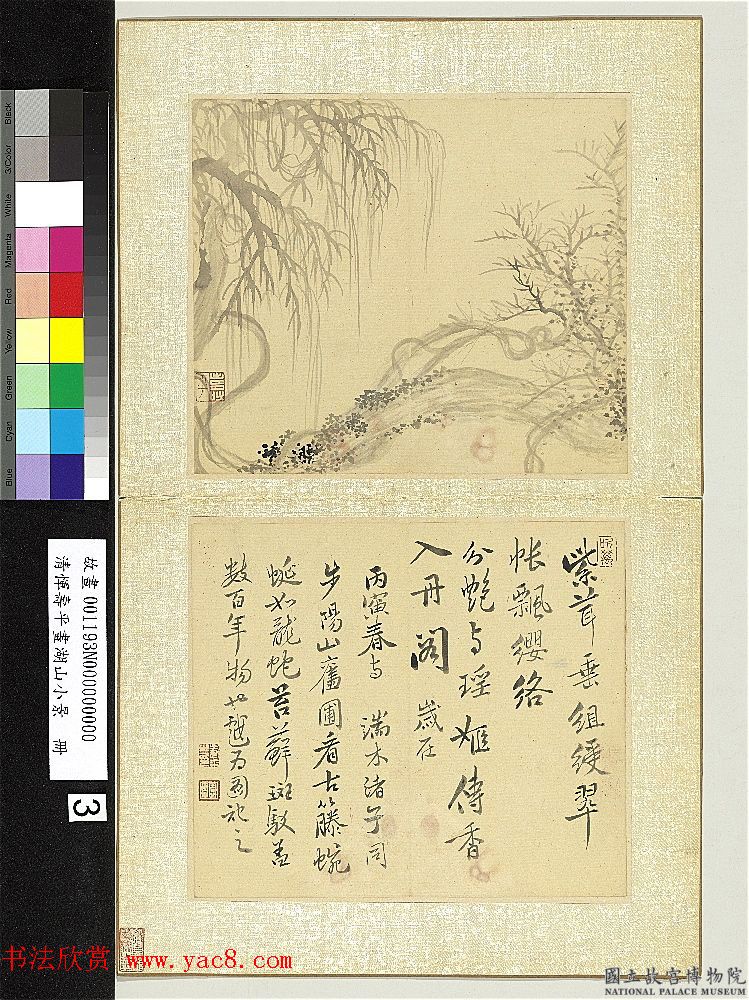 紫茸垂組綬翠
帐飄纓络
分艶与瑶姬傳香
入丹阁 歲在
丙寅春与 湍木諸子同
步陽山舊圃看古籐蜿
蜒如龍蛇苔蘚斑駁蓋
数百年物也戲为圖記之
Black
3/Color
White
Magenta
Red
Yellow
Green
Cyan
Blue
故畫 001193N000000000
清惲壽平畫湖山小景 冊
3
书法欣赏 www.yac8.com
國立故宮博物院
NATIONAL PALACE MUSEUM